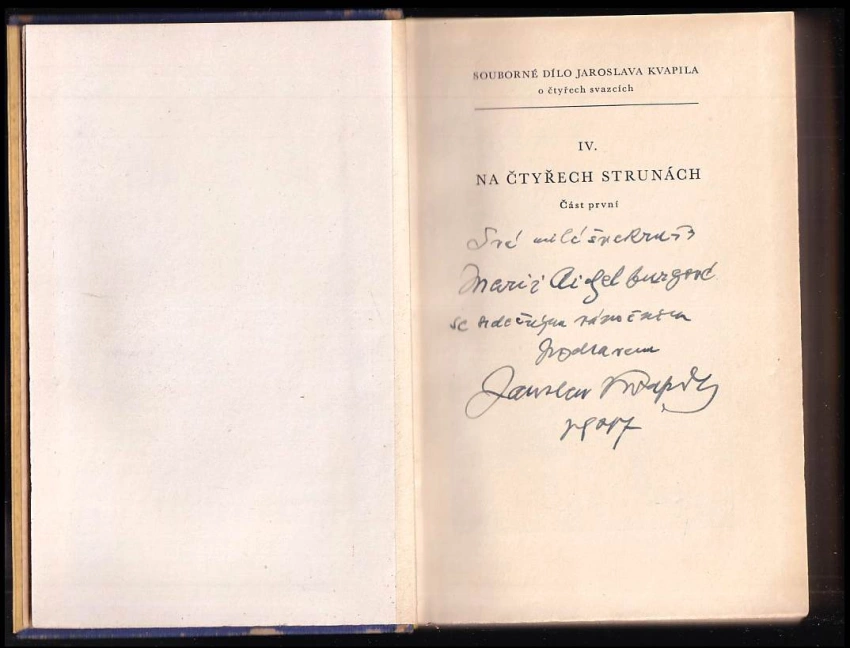 SOUBORNÉ DÍLO JAROSLAVA KVAPILA
o čtyřech svazcích
IV.
NA ČTYŘECH STRUNÁCH
Část první
Své milé švekruši
Marii Aigelburgové
se srdečným vánočním
pozdravem
Jaroslav Kvapil